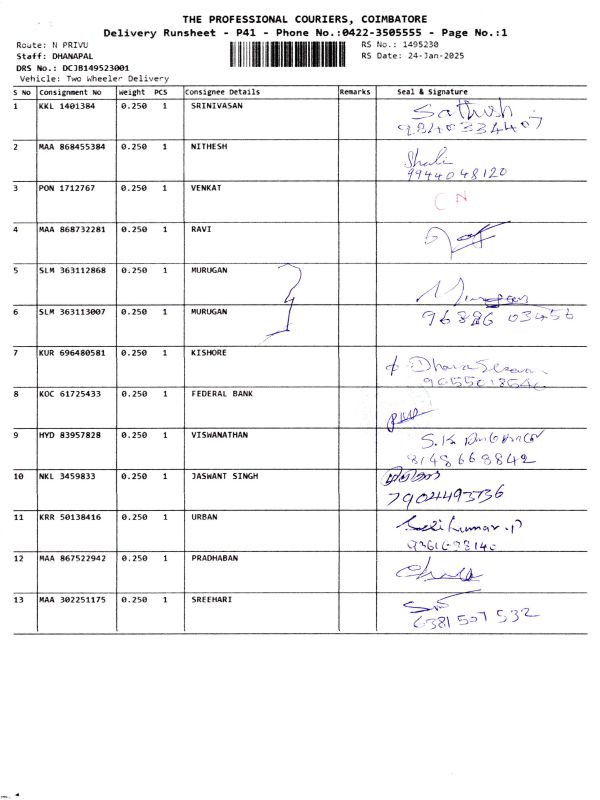 THE PROFESSIONAL COURIERS, COIMBATORE
Delivery Runsheet - P41 - Phone No.:0422-3505555 - Page No.:1
Route: N PRIVU RS No.: 1495230
Staff: DHANAPAL RS Date: 24-Jan-2025
DRS No.: DCJB149523001
Vehicle: Two Wheeler Delivery
S No Consignment No Weight PCS Consignee Details Remarks Seal & Signature
1 KKL 1401384 0.250 1 SRINIVASAN Sathish
9840334407
2 MAA 868455384 0.250 1 NITHESH
9944048120
3 PON 1712767 0.250 1 VENKAT CN
4 MAA 868732281 0.250 1 RAVI
5 SLM 363112868 0.250 1 MURUGAN Murugan
6 SLM 363113007 0.250 1 MURUGAN 96886 03456
7 KUR 696480581 0.250 1 KISHORE
8 KOC 61725433 0.250 1 FEDERAL BANK
9 HYD 83957828 0.250 1 VISWANATHAN S.K
8148668842
10 NKL 3459833 0.250 1 JASWANT SINGH
7904493736
11 KRR 50138416 0.250 1 URBAN
12 MAA 867522942 0.250 1 PRADHABAN
13 MAA 302251175 0.250 1 SREEHARI
6381507532